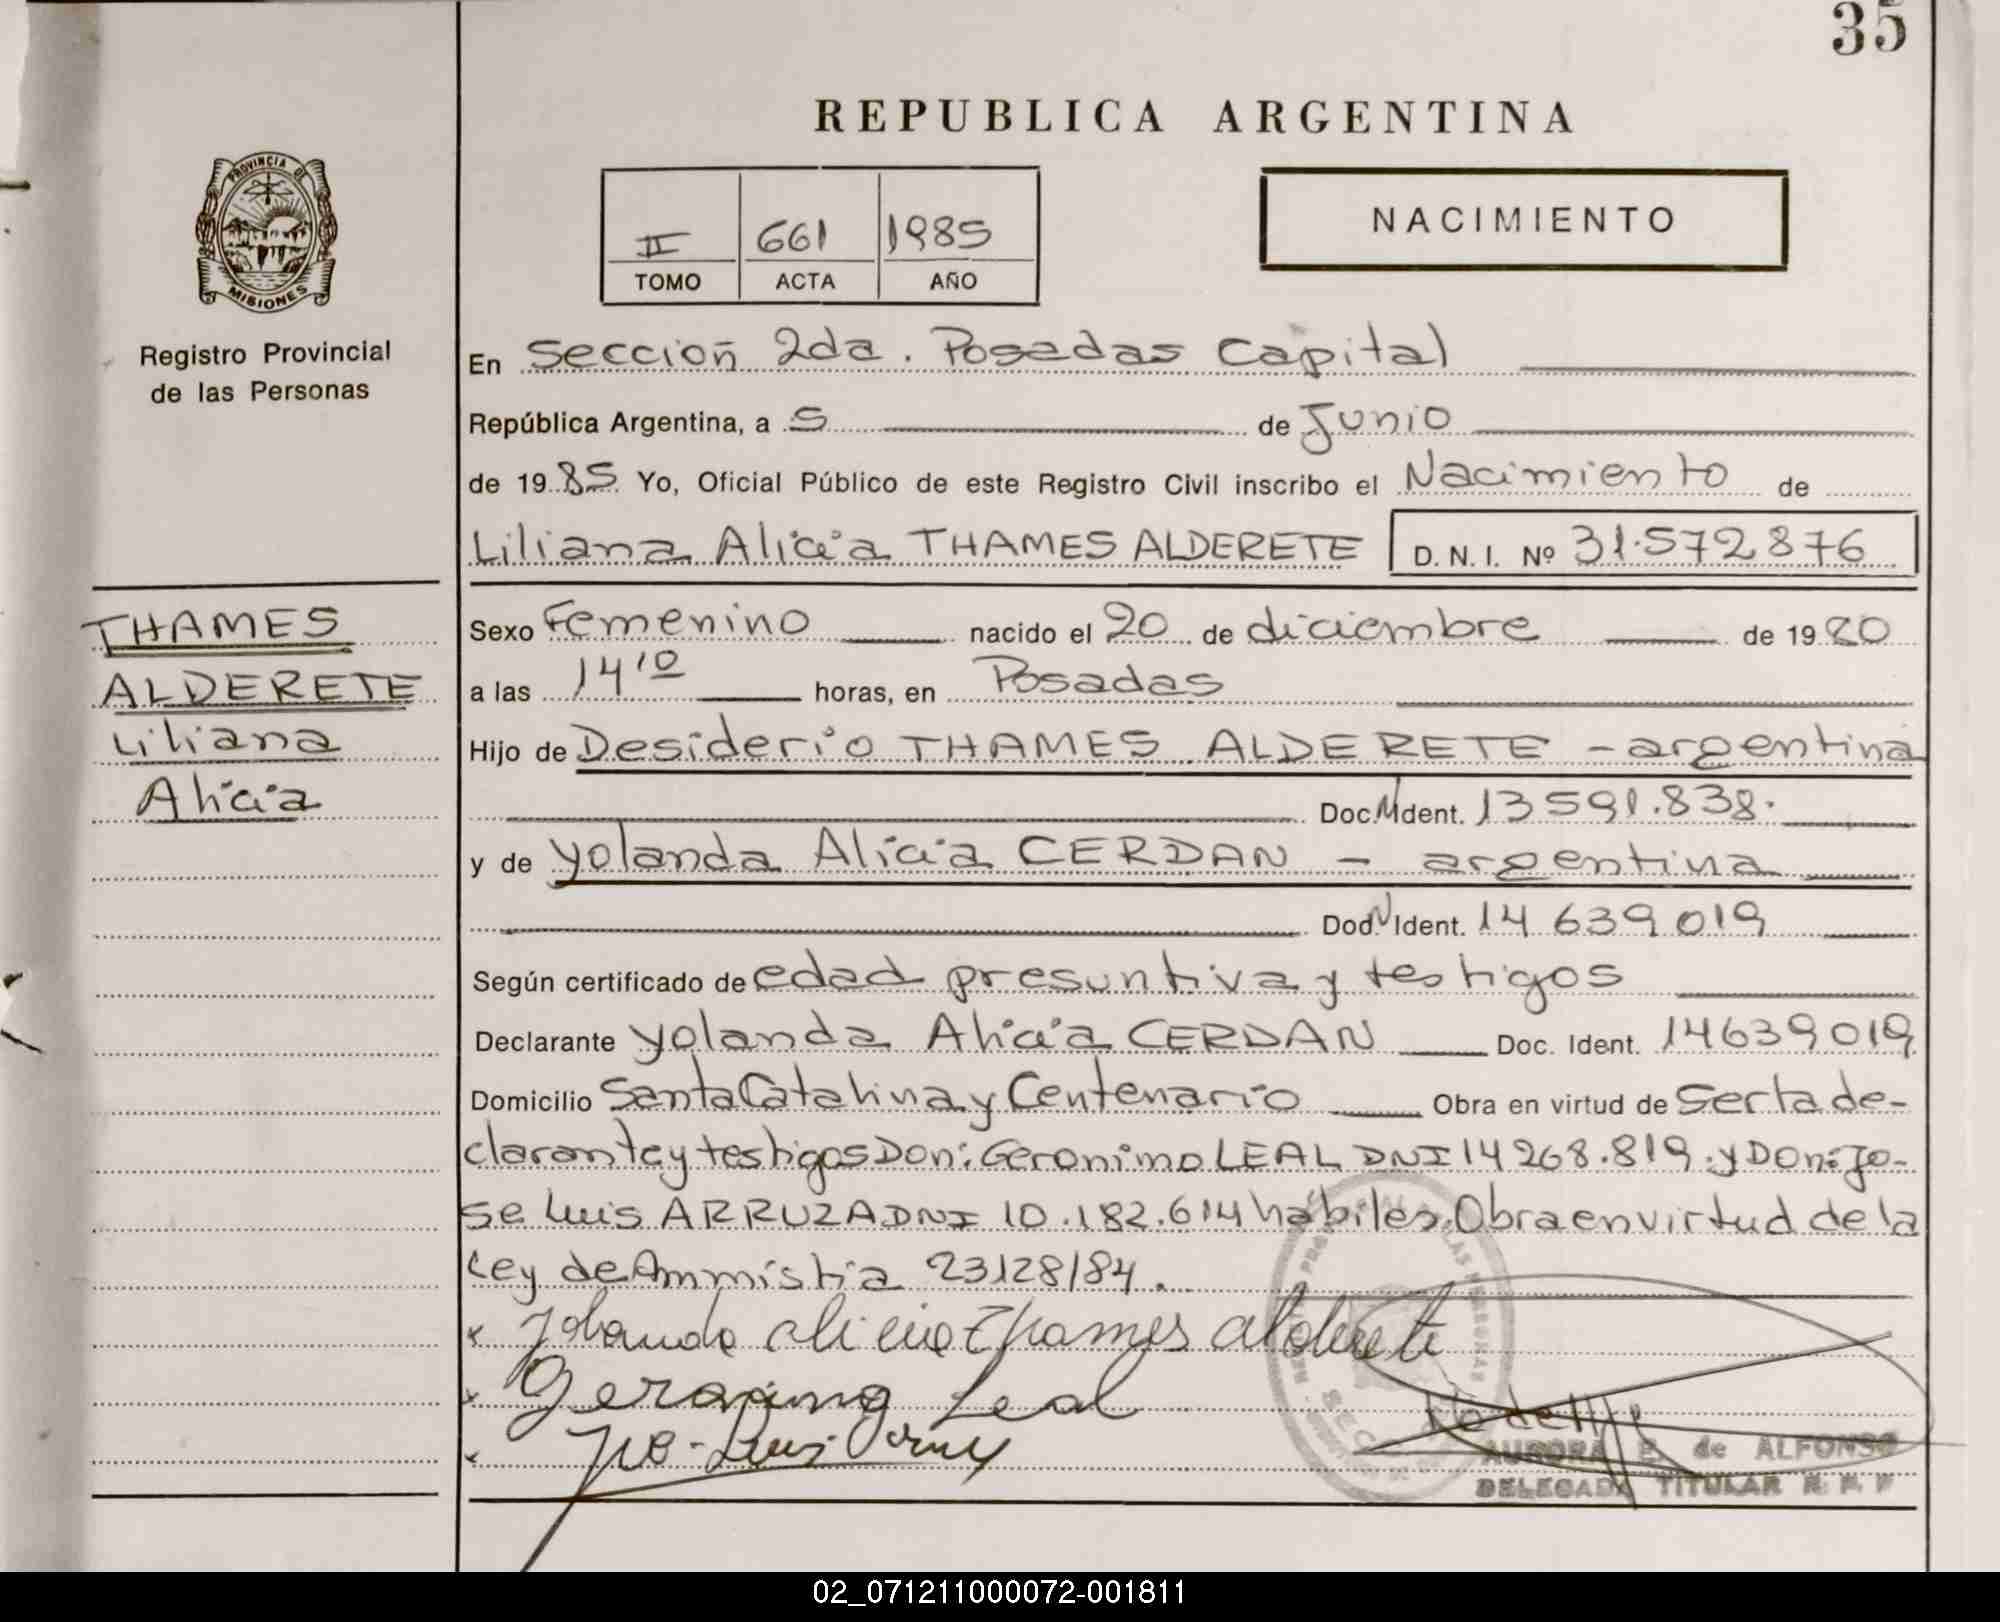 35
REPUBLICA ARGENTINA
PROVINCIA DE
MISIONES
Registro Provincial
de las Personas
II 661 1985
TOMO ACTA AÑO
NACIMIENTO
En Sección 2da. Posadas Capital
República Argentina, a 5 de Junio
de 1985 Yo, Oficial Público de este Registro Civil inscribo el Nacimiento de
Liliana Alicia THAMES ALDERETE D. N. I. Nº 31.572876
THAMES
ALDERETE
Liliana
Alicia
Sexo Femenino nacido el 20 de diciembre de 1980
a las 14 10 horas, en Posadas
Hijo de Desiderio THAMES ALDERETE - argentina
Doc. M Ident. 13591.838.
y de Yolanda Alicia CERDAN - argentina
Doc. N Ident. 14 639 019
Según certificado de edad presuntiva y testigos
Declarante Yolanda Alicia CERDAN Doc. Ident. 14639019
Domicilio Santa Catalina y Centenario Obra en virtud de Serta de-
clarante y testigos Don: Geronimo LEAL DNI 14268.819. y Don: Jo-
se Luis ARRUZA DNI 10.182.614 hábiles. Obra en virtud de la
Ley de Ammistia 23128/84.
x Yolanda alicia Thames alderete
x Geronimo Leal
x Jose Luis
AURORA E. de ALFONSO
DELEGADA TITULAR R. P. P
02_071211000072-001811